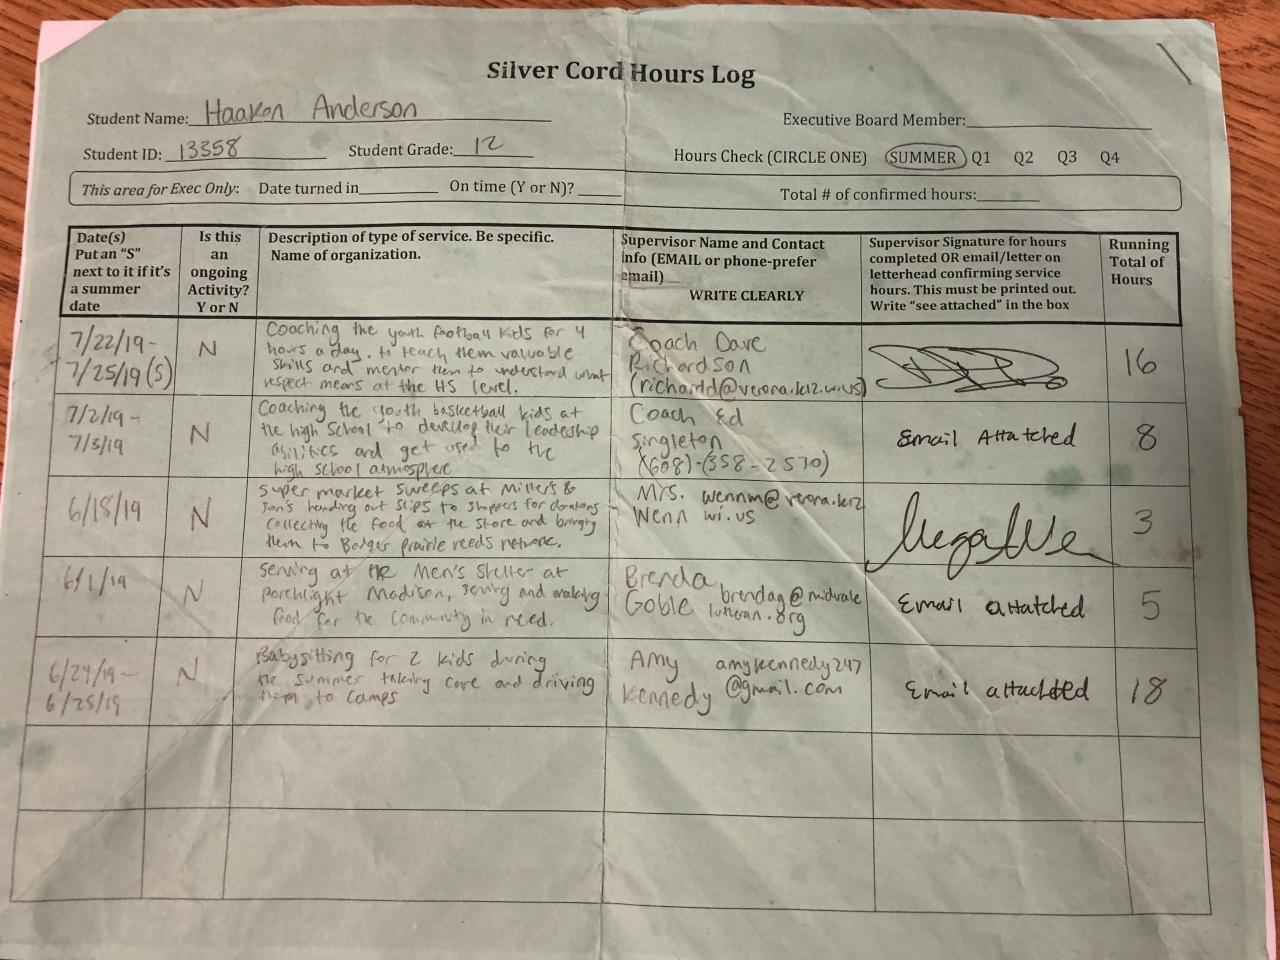 Silver Cord Hours Log
Student Name: Haakon Anderson
Executive Board Member:
Student ID: 13358 Student Grade: 12
Hours Check (CIRCLE ONE) SUMMER Q1 Q2 Q3 Q4
This area for Exec Only: Date turned in On time (Y or N)? Total # of confirmed hours:
Date(s)
Put an "S"
next to it if it's
a summer
date
Is this
an
ongoing
Activity?
Y or N
Description of type of service. Be specific.
Name of organization.
Supervisor Name and Contact
Info (EMAIL or phone-prefer
email)
WRITE CLEARLY
Supervisor Signature for hours
completed OR email/letter on
letterhead confirming service
hours. This must be printed out.
Write "see attached" in the box
Running
Total of
Hours
7/22/19-
7/25/19 (S)
N
Coaching the youth football kids for 4
hours a day. to teach them valuable
skills and mentor them to understand what
respect means at the HS level.
Coach Dave
Richardson
(richardd@verona.k12.wi.us)
16
7/2/19 -
7/3/19
N
Coaching the youth basketball kids at
the high school to develop their leadership
abilities and get used to the
high school atmosphere
Coach Ed
Singleton
(608)-(358-2570)
Email Attatched
8
6/18/19
N
super market sweeps at Miller's &
Son's handing out slips to shoppers for donations
collecting the food at the store and bringing
them to Badger prairie needs network.
Mrs. wennm@verona.k12
Wenn wi.us
3
6/1/19
N
serving at the Men's Shelter at
porchlight Madison, serving and making
food for the community in need.
Brenda brendag@midvale
Goble lutheran.org
Email attatched
5
6/24/19-
6/25/19
N
Babysitting for 2 kids during
the summer taking care and driving
them to camps
Amy amykennedy247
Kennedy @gmail.com
Email attatched
18